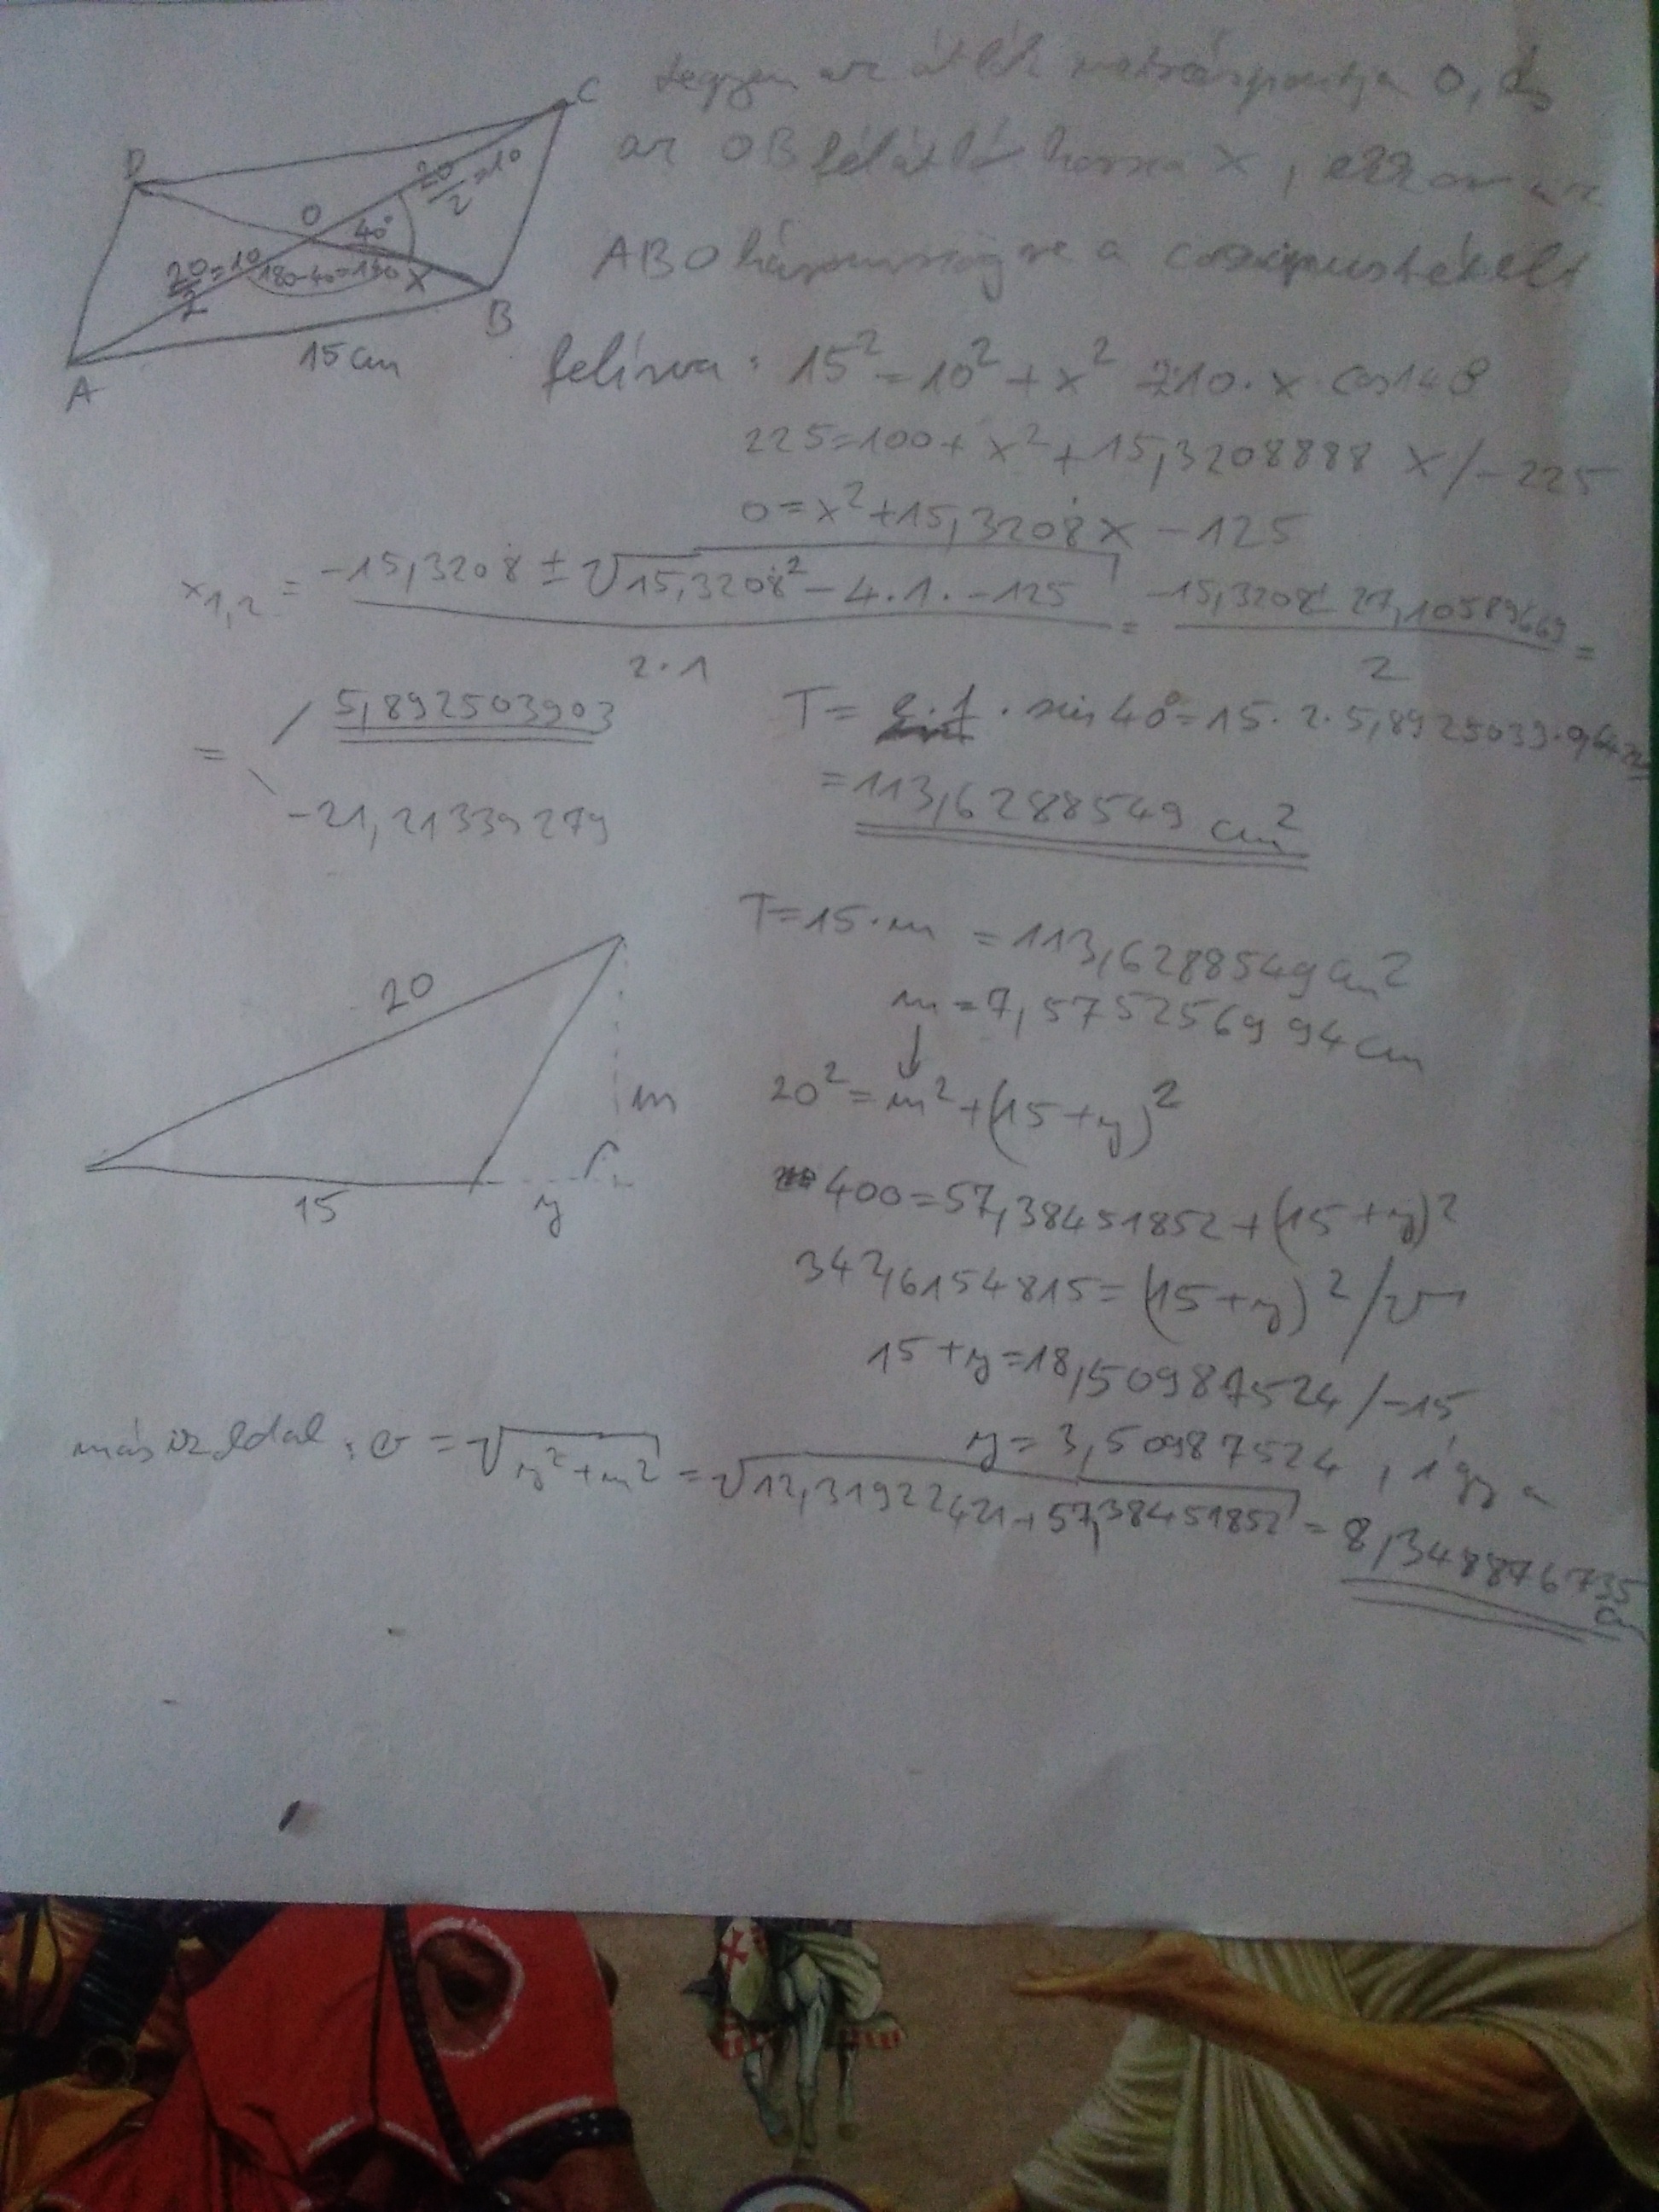 D
C
O
40°
20/2=10
20/2=10
180-40=140
X
B
15 cm
A
Legyen az átlók metszéspontja O, és
az OB félátló hossza X, ekkor az
ABO háromszögre a cosinustételt
felírva: 15² = 10² + x² - 2·10·x·cos140
225=100+x²+15,3208888 x /-225
0=x²+15,3208x-125
x1,2 = (-15,3208 ± √(15,3208² - 4·1·-125)) / (2·1) = (-15,3208 ± 27,10589669) / 2 =
= 5,892503903
-21,21339279
T= e·f · sin 40°=15·2·5,8925039·0,642
=113,6288549 cm²
T=15·m =113,6288549 cm²
m=7,5752569 94 cm
20
m
15
y
20²=m²+(15+y)²
400=57,38451852+(15+y)²
342,6154815=(15+y)² /√
15+y=18,50987524 /-15
y=3,50987524, így a
másik oldal: =√(y²+m²) =√(12,31922421+57,38451852) = 8,348876735 cm